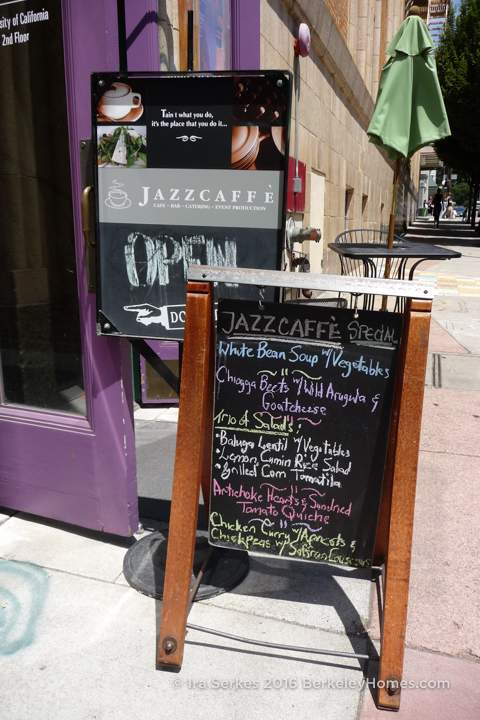 sity of California
2nd Floor
Tain t what you do,
it's the place that you do it...
JAZZCAFFÈ
CAFE • BAR • CATERING • EVENT PRODUCTION
OPEN
JAZZCAFFÈ Special
White Bean Soup w/Vegetables
Chiogga Beets w/Wild Arugula &
Goatcheese
Trio of Salads:
• Baluga Lentil w/Vegetables
• Lemon Cumin Rice Salad
• Grilled Corn Tomatilla
Artichoke Hearts & Sundried
Tomato Quiche
Chicken Curry w/Apricots &
Chickpeas w/ Saffron Couscous
© Ira Serkes 2016 BerkeleyHomes.com